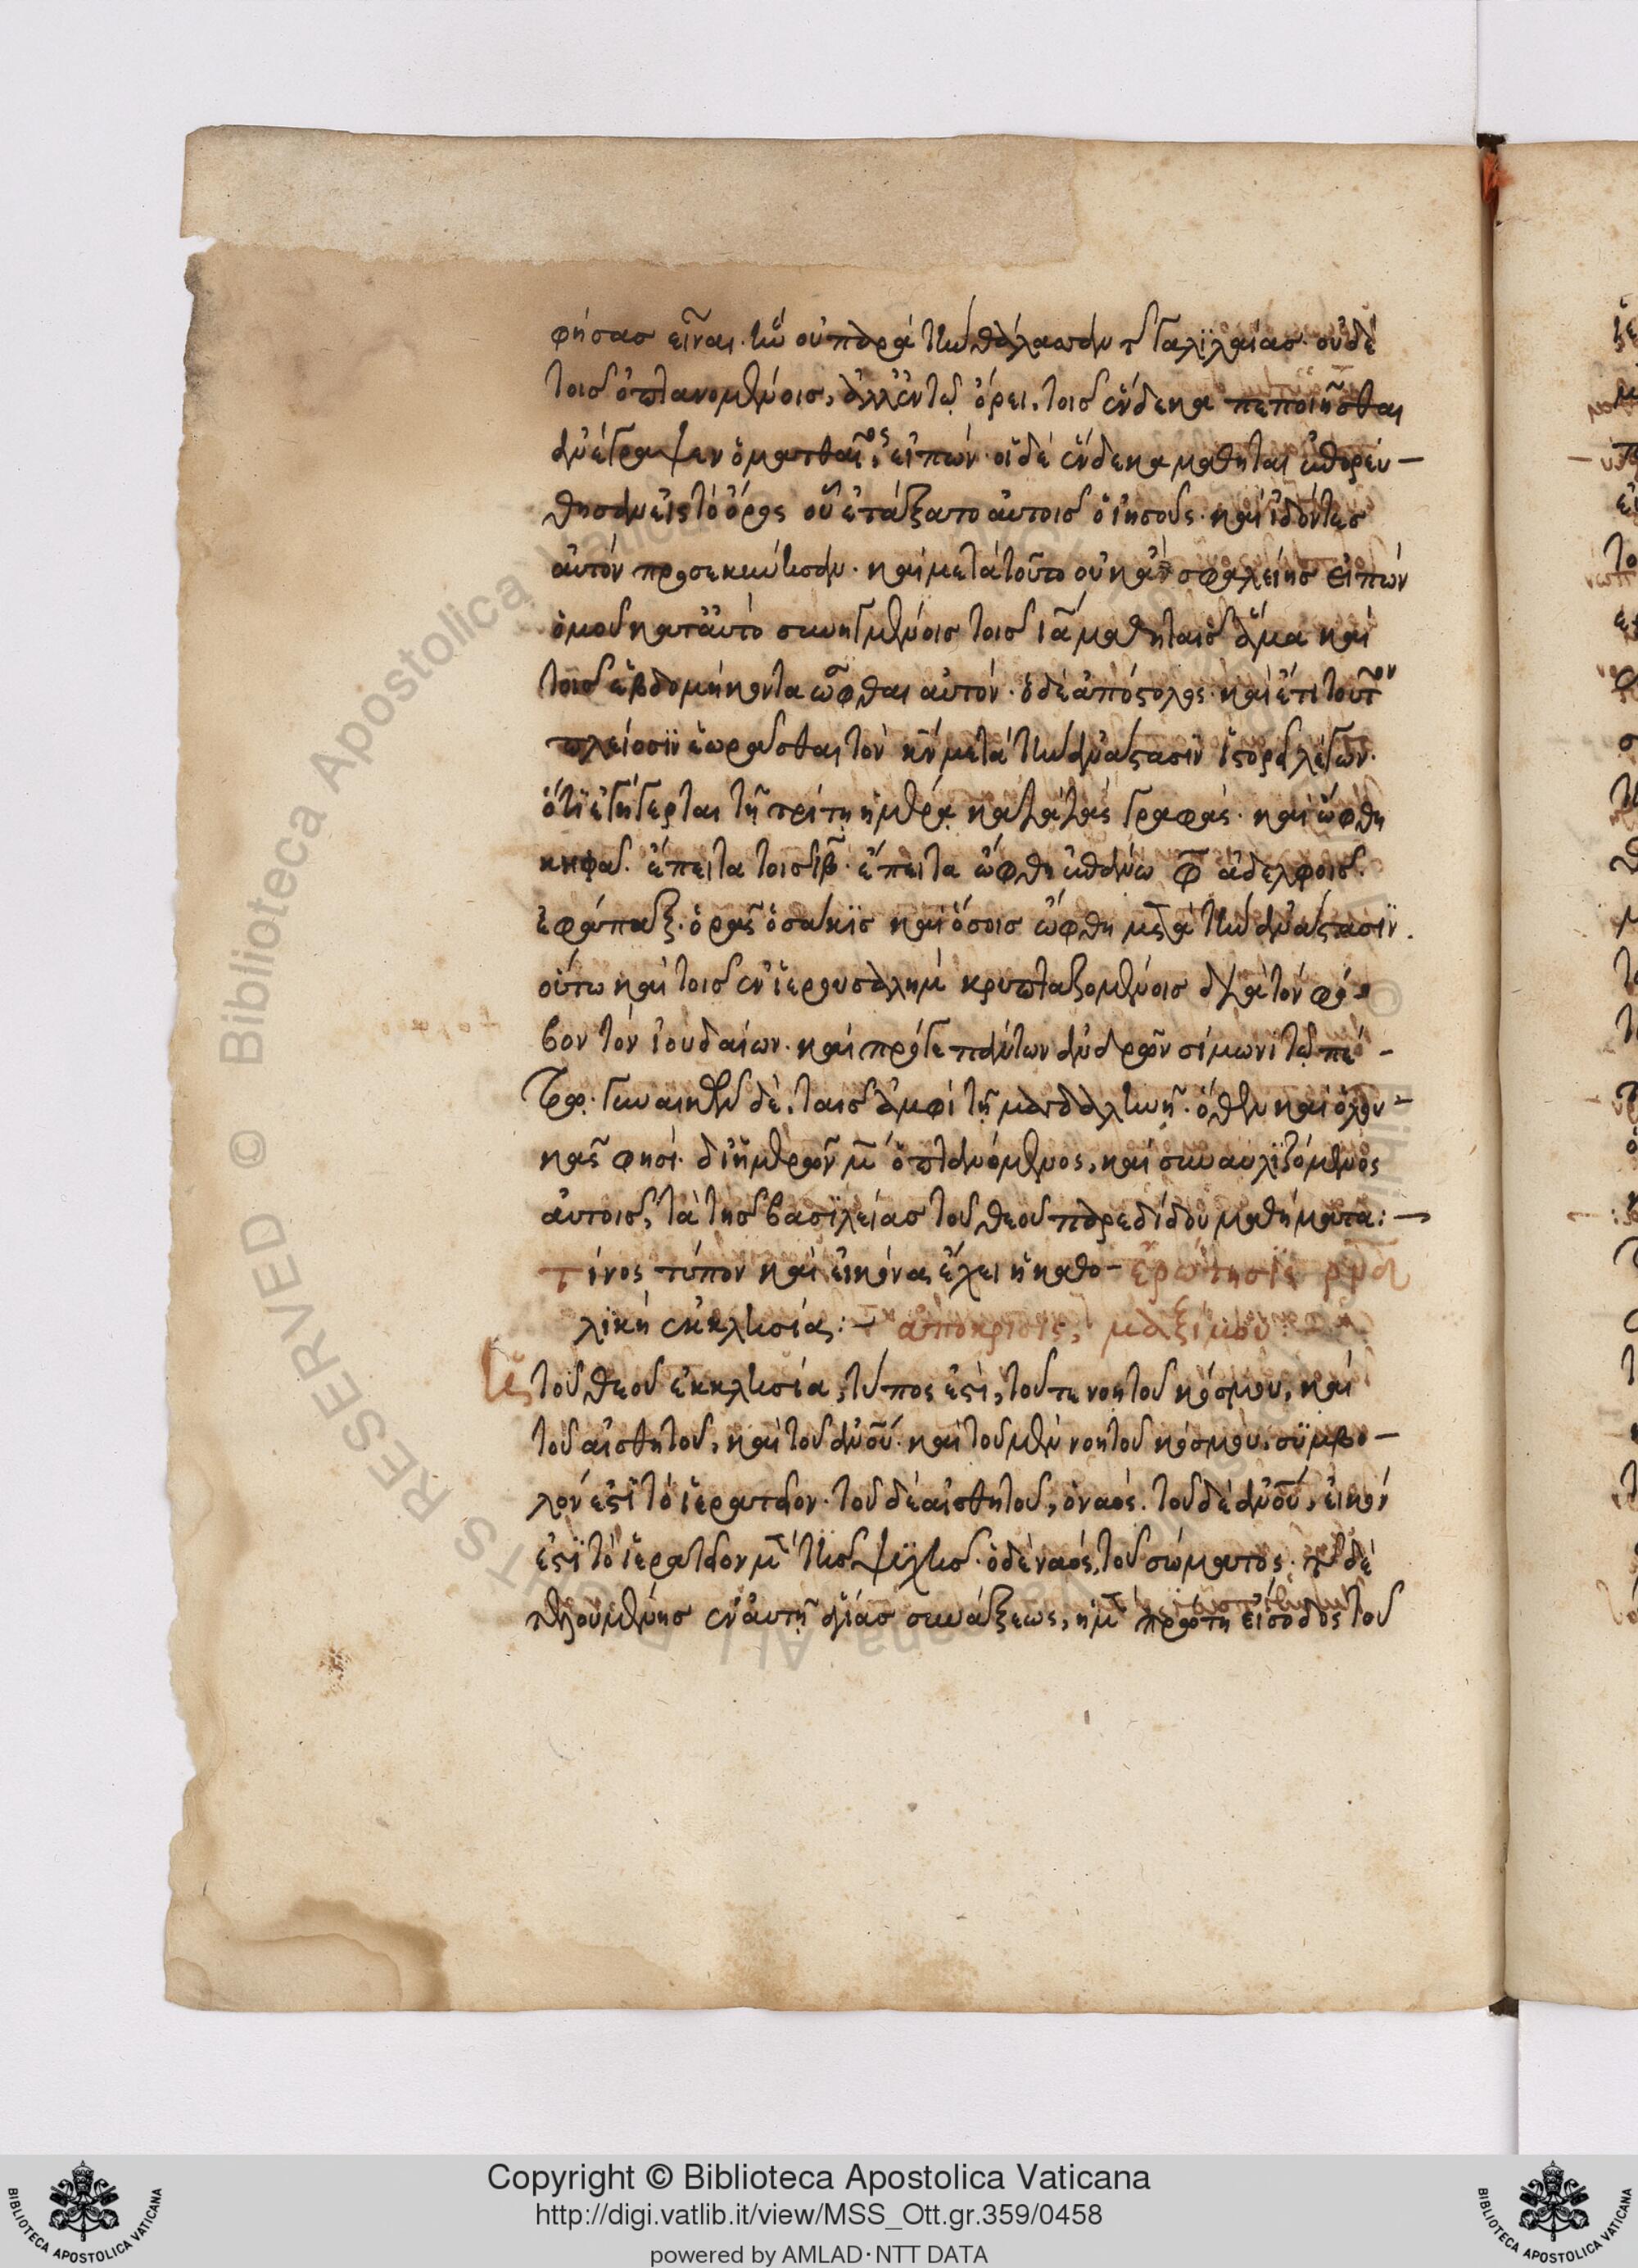 φήσας εἶναι· τὴν οὐ παρὰ τὴν θάλασσαν τῆς γαλιλαίας· οὐδὲ
τοῖς ὀπτανομένοις, ἀλλ' ἐν τῷ ὄρει, τοῖς ἕνδεκα πεποιῆσθαι
ἀνέγραψεν ὁ ματθαῖος, εἰπών· οἱ δὲ ἕνδεκα μαθηταὶ ἐπορεύ-
θησαν εἰς τὸ ὄρος οὗ ἐτάξατο αὐτοῖς ὁ ἰησοῦς· καὶ ἰδόντες
αὐτὸν προσεκύνησαν· καὶ μετὰ τοῦτο οὐκ ἂν σφαλείης εἰπὼν
ὁμοῦ κατ' αὐτὸ συνηγμένοις τοῖς ια μαθηταῖς ἅμα καὶ
τοῖς ἑβδομήκοντα ὦφθαι αὐτόν· ὁ δὲ ἀπόστολος καὶ ἔτι τούτον
πλείοσιν ἑωρᾶσθαι τὸν κν μετὰ τὴν ἀνάστασιν ἱστορεῖ λέγων·
ὅτι ἐγήγερται τῇ τρίτῃ ἡμέρᾳ κατὰ τὰς γραφάς· καὶ ὤφθη
κηφᾷ· ἔπειτα τοῖς ιβ· ἔπειτα ὤφθη ἐπάνω φ ἀδελφοῖς·
ἐφάπαξ· ὁρᾷς ὁσάκις καὶ ὅσοις ὤφθη μετὰ τὴν ἀνάστασιν·
οὕτω καὶ τοῖς ἐν ἱερουσαλὴμ κρυπταζομένοις διὰ τὸν φό-
βον τῶν ἰουδαίων· καὶ πρό γε πάντων ἀνδρῶν σίμωνι τῷ πέ-
τρῳ· γυναικῶν δὲ, ταῖς ἀμφὶ τῇ μαγδαληνῇ· ὅθεν καὶ ὁ λου-
κᾶς φησί· δι' ἡμερῶν μ ὀπτανόμενος, καὶ συναυλιζόμενος
αὐτοῖς, τὰ τῆς βασιλείας τοῦ θεοῦ παρεδίδου μαθήματα:—
τίνος τύπον καὶ εἰκόνας ἔχει ἡ καθο- ἐρώτησις ρμα
λικὴ ἐκκλησία:— ἀπόκρισις, μαξίμου
τοῦ θεοῦ ἐκκλησία, τύπος ἐστὶ, τοῦ τε νοητοῦ κόσμου, καὶ
τοῦ αἰσθητοῦ, καὶ τοῦ ἀνου· καὶ τοῦ μὲν νοητοῦ κόσμου, σύμβο-
λόν ἐστι τὸ ἱερατεῖον· τοῦ δὲ αἰσθητοῦ, ὁ ναός· τοῦ δὲ ἀνου, εἰκὸν
ἐστι τὸ ἱερατεῖον μὲν τῆς ψυχῆς· ὁ δὲ ναὸς, τοῦ σώματος· τῆς δὲ
τελουμένης ἐν αὐτῇ ἁγίας συνάξεως, ἡ μὲν πρώτη εἴσοδος τοῦ
Copyright © Biblioteca Apostolica Vaticana
http://digi.vatlib.it/view/MSS_Ott.gr.359/0458
powered by AMLAD·NTT DATA